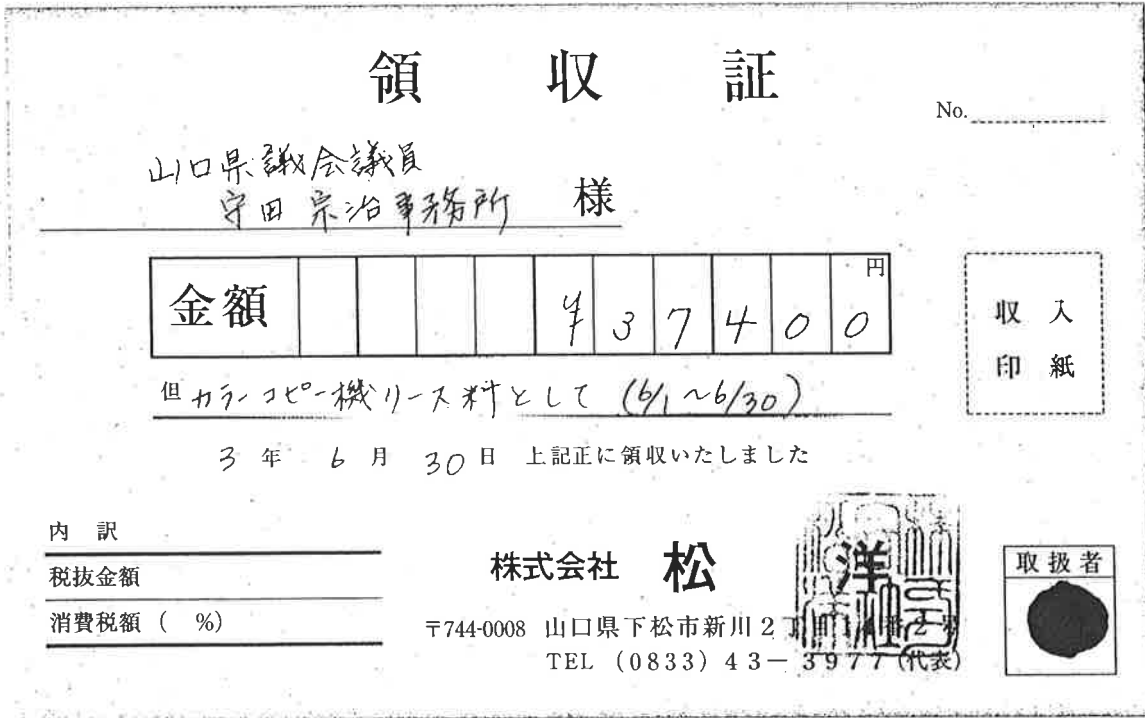 領収証
No.
山口県議会議員
守田宗治事務所 様
金額 ¥37400円
但 カラーコピー機リース料として (6/1~6/30)
3年 6月 30日 上記正に領収いたしました
収入
印紙
内訳
税抜金額
消費税額( %)
株式会社 松洋
〒744-0008 山口県下松市新川2丁目
TEL (0833) 43-3977(代表)
取扱者